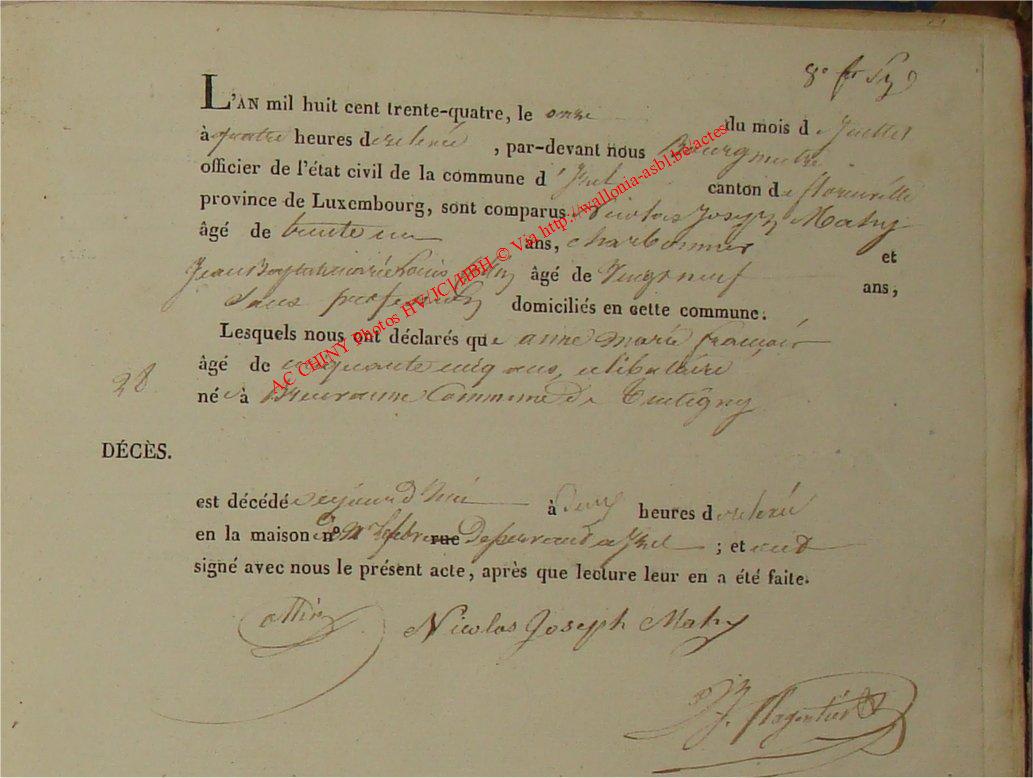 8e
L'AN mil huit cent trente-quatre, le onze du mois de Juillet
à quatre heures de relevé, par-devant nous Bourgmestre
officier de l'état civil de la commune d'Izel canton de florenville
province de Luxembourg, sont comparus Nicolas Joseph Mahy
âgé de trente un ans, charbonnier et
Jean Baptiste marie Louis âgé de Vingt neuf ans,
Sans profession domiciliés en cette commune.
Lesquels nous ont déclarés que anne marie françois
âgé de cinquante cinq ans, celibataire
28
née à Breuvanne Commune de Tintigny
DÉCÈS.
est décédée aujourd'hui à deux heures de relevé
en la maison nº rue a Izel ; et ont
signé avec nous le présent acte, après que lecture leur en a été faite.
Nicolas Joseph Mahy
AC CHINY Photos HV/JCJ/HBH © Via http://wallonia-asbl.be/actes